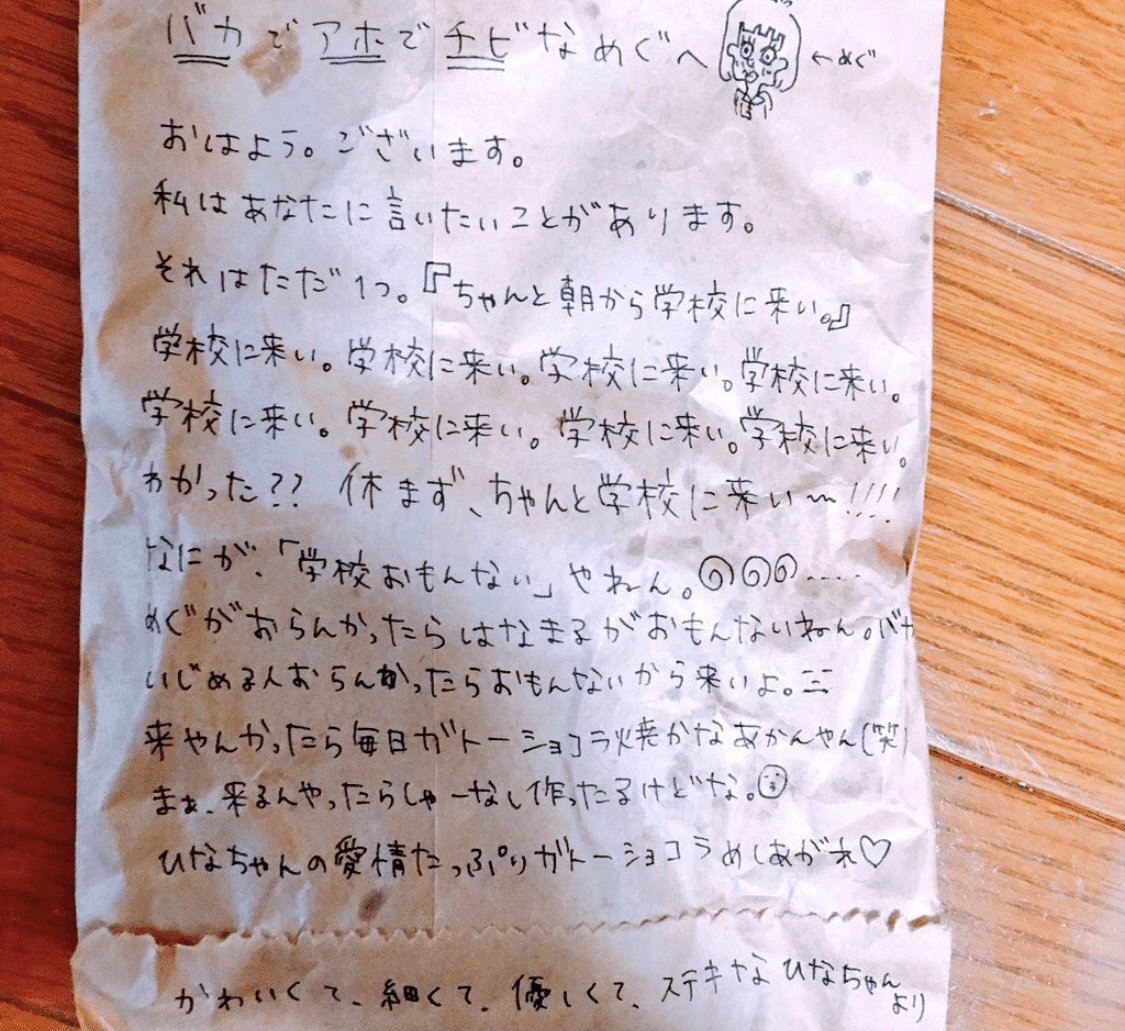 バカでアホでチビなめぐへ ←めぐ
おはよう。ございます。
私はあなたに言いたいことがあります。
それはただ1つ。『ちゃんと朝から学校に来い。』
学校に来い。学校に来い。学校に来い。学校に来い。
学校に来い。学校に来い。学校に来い。学校に来い。
わかった?? 休まず、ちゃんと学校に来い〜!!!!
なにが、「学校おもんない」やねん。.....
めぐがおらんかったらはなまるがおもんないねん。バカ
いじめる人おらんかったらおもんないから来いよ。
来やんかったら毎日ガトーショコラ焼かなあかんやん(笑)
まぁ、来るんやったらしゃーなし作ったるけどな。
ひなちゃんの愛情たっぷりガトーショコラめしあがれ♡
かわいくて、細くて、優しくて、ステキなひなちゃんより